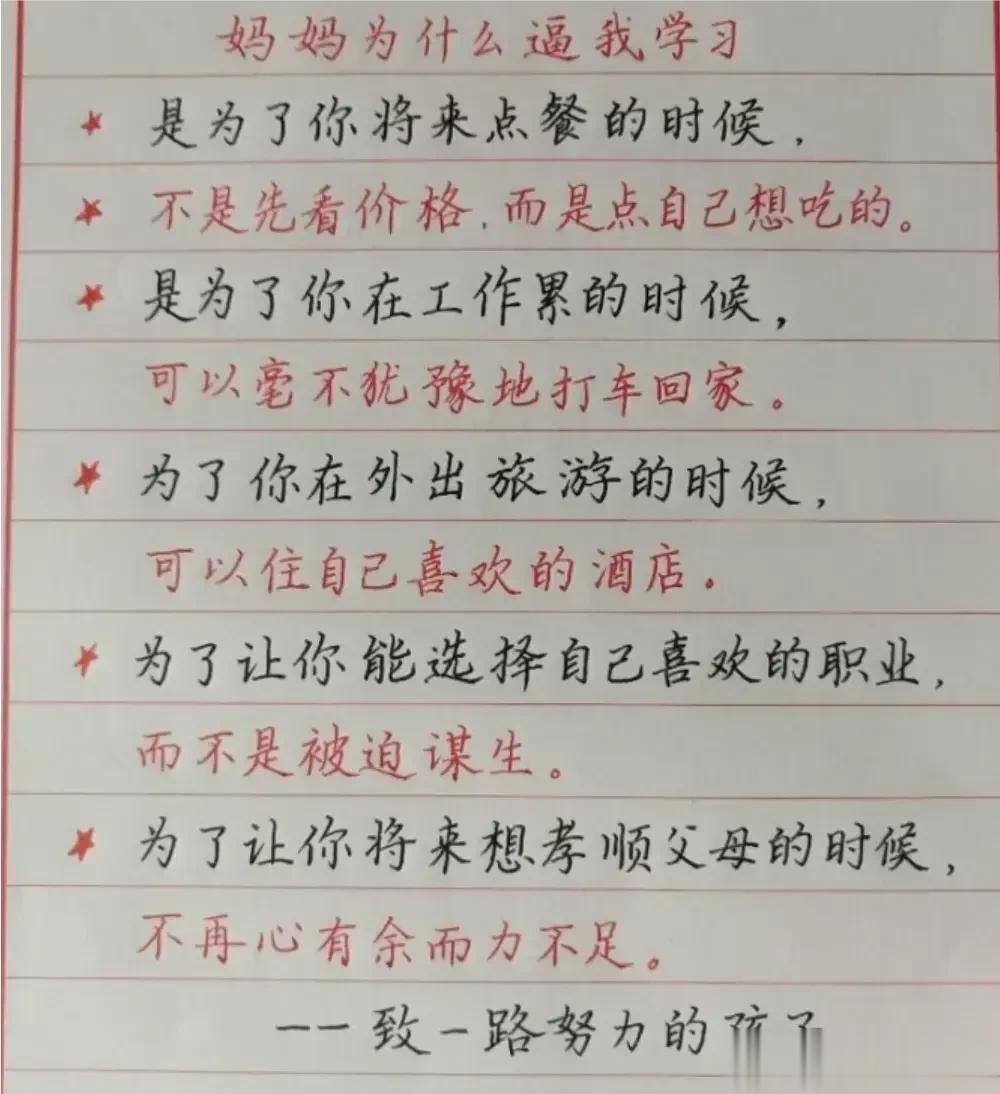 妈妈为什么逼我学习
★ 是为了你将来点餐的时候，
★ 不是先看价格，而是点自己想吃的。
★ 是为了你在工作累的时候，
可以毫不犹豫地打车回家。
★ 为了你在外出旅游的时候，
可以住自己喜欢的酒店。
★ 为了让你能选择自己喜欢的职业，
而不是被迫谋生。
★ 为了让你将来想孝顺父母的时候，
不再心有余而力不足。
——致一路努力的